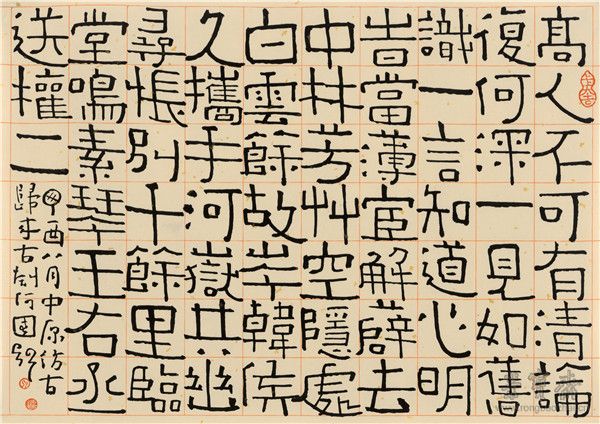 高人不可有清論
復何深一見如舊
識一言知道心明
旹當薄宦解薜去
中林芳艸空隱處
白雲餘故岑韓侯
久攜手河嶽共幽
尋悵別千餘里臨
堂鳴素琴王右丞
送權二
酉八月中原仿古
歸來